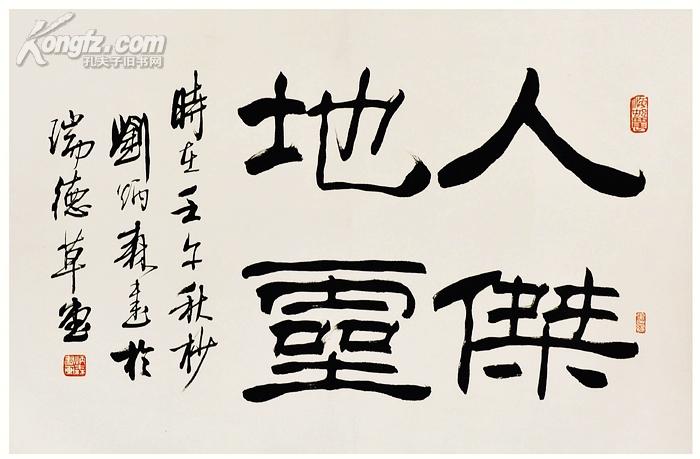 人傑
地靈
時在壬午秋杪
劉炳森書於
瑞德草堂
Kongfz.com
孔夫子旧书网